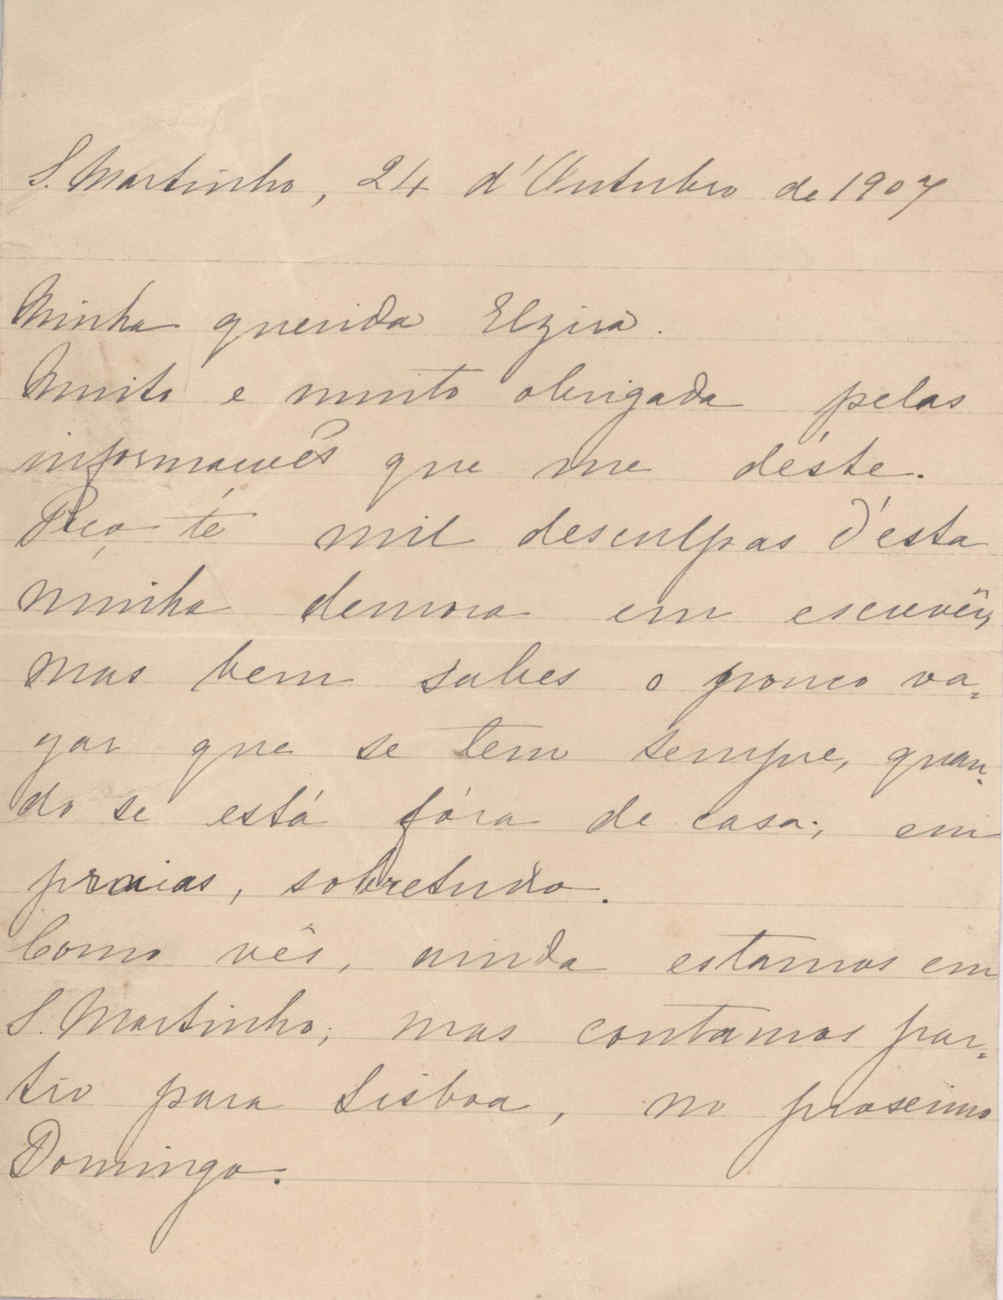 S. Martinho, 24 d'Outubro de 1907
Minha querida Elzira.
Muito e muito obrigada pelas
informacões que me déste.
Péço-te mil desculpas d'esta
minha demora em escrevêr,
mas bem sabes o pouco va-
gar que se tem sempre, quan-
do se está fóra de casa; em
praias, sobretudo.
Como vês, ainda estamos em
S. Martinho; mas contamos par-
tir para Lisboa, no proseimo
Domingo.